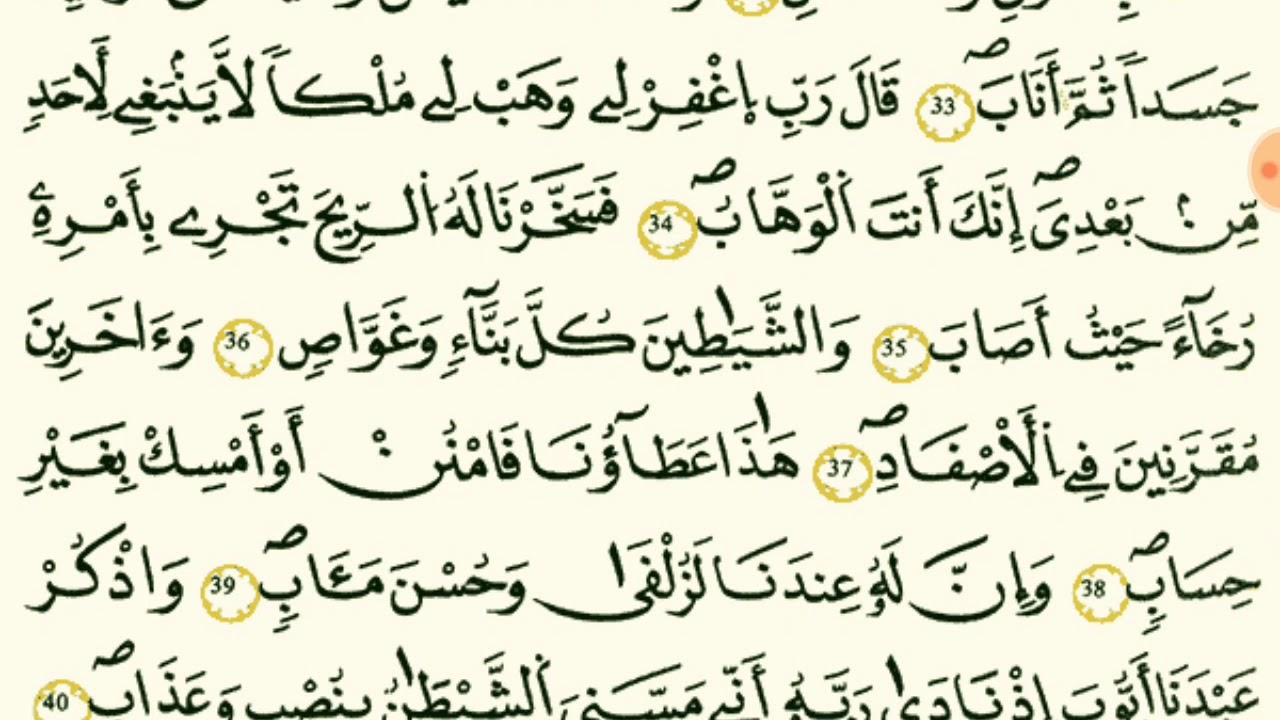 جَسَداٗ ثُمَّ أَنَابَۖ 33 قَالَ رَبِّ اِ۪غْفِرْ لِے وَهَبْ لِے مُلْكاٗ لَّا يَنۢبَغِے لِأَحَدٖ
مِّنۢ بَعْدِيَۖ إِنَّكَ أَنتَ اَ۬لْوَهَّابُۖ 34 فَسَخَّرْنَا لَهُ اُ۬لرِّيحَ تَجْرِے بِأَمْرِهِۦ
رُخَآءً حَيْثُ أَصَابَ 35 وَالشَّيَٰطِينَ كُلَّ بَنَّآءٖ وَغَوَّاصٖ 36 وَءَاخَرِينَ
مُقَرَّنِينَ فِے اِ۬لْأَصْفَادِۖ 37 هَٰذَا عَطَآؤُنَا فَامْنُنْ أَوْ أَمْسِكْ بِغَيْرِ
حِسَابٖۖ 38 وَإِنَّ لَهُۥ عِندَنَا لَزُلْفَىٰ وَحُسْنَ مَـَٔابٖۖ 39 وَاذْكُرْ
عَبْدَنَا أَيُّوبَ إِذْ نَادَىٰ رَبَّهُۥٓ أَنِّے مَسَّنِيَ اَ۬لشَّيْطَٰنُ بِنُصْبٖ وَعَذَابٖۖ 40